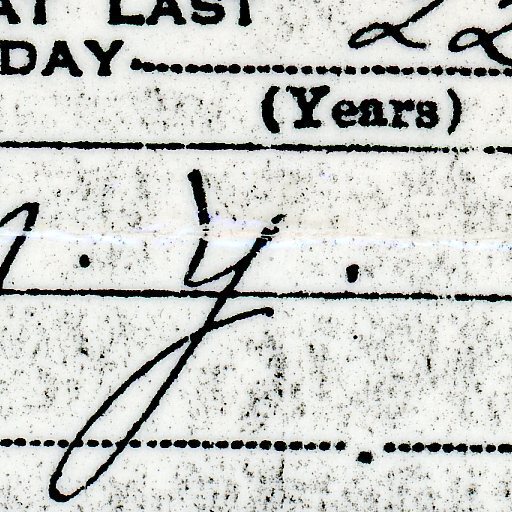 AT LAST 22
DAY
(Years)
. Y .